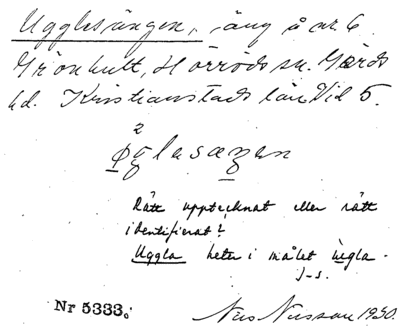 Ugglesängen, äng å nr. 6
Grönhult, Hörröds sn. Gärds
hd. Kristianstads län. Vid 5.
2
øglasazan
Rätt upptecknat eller rätt
identifierat?
Uggla heter i målet ùgla.
J-s.
Nr 5333.
Nils Nilsson 1930.